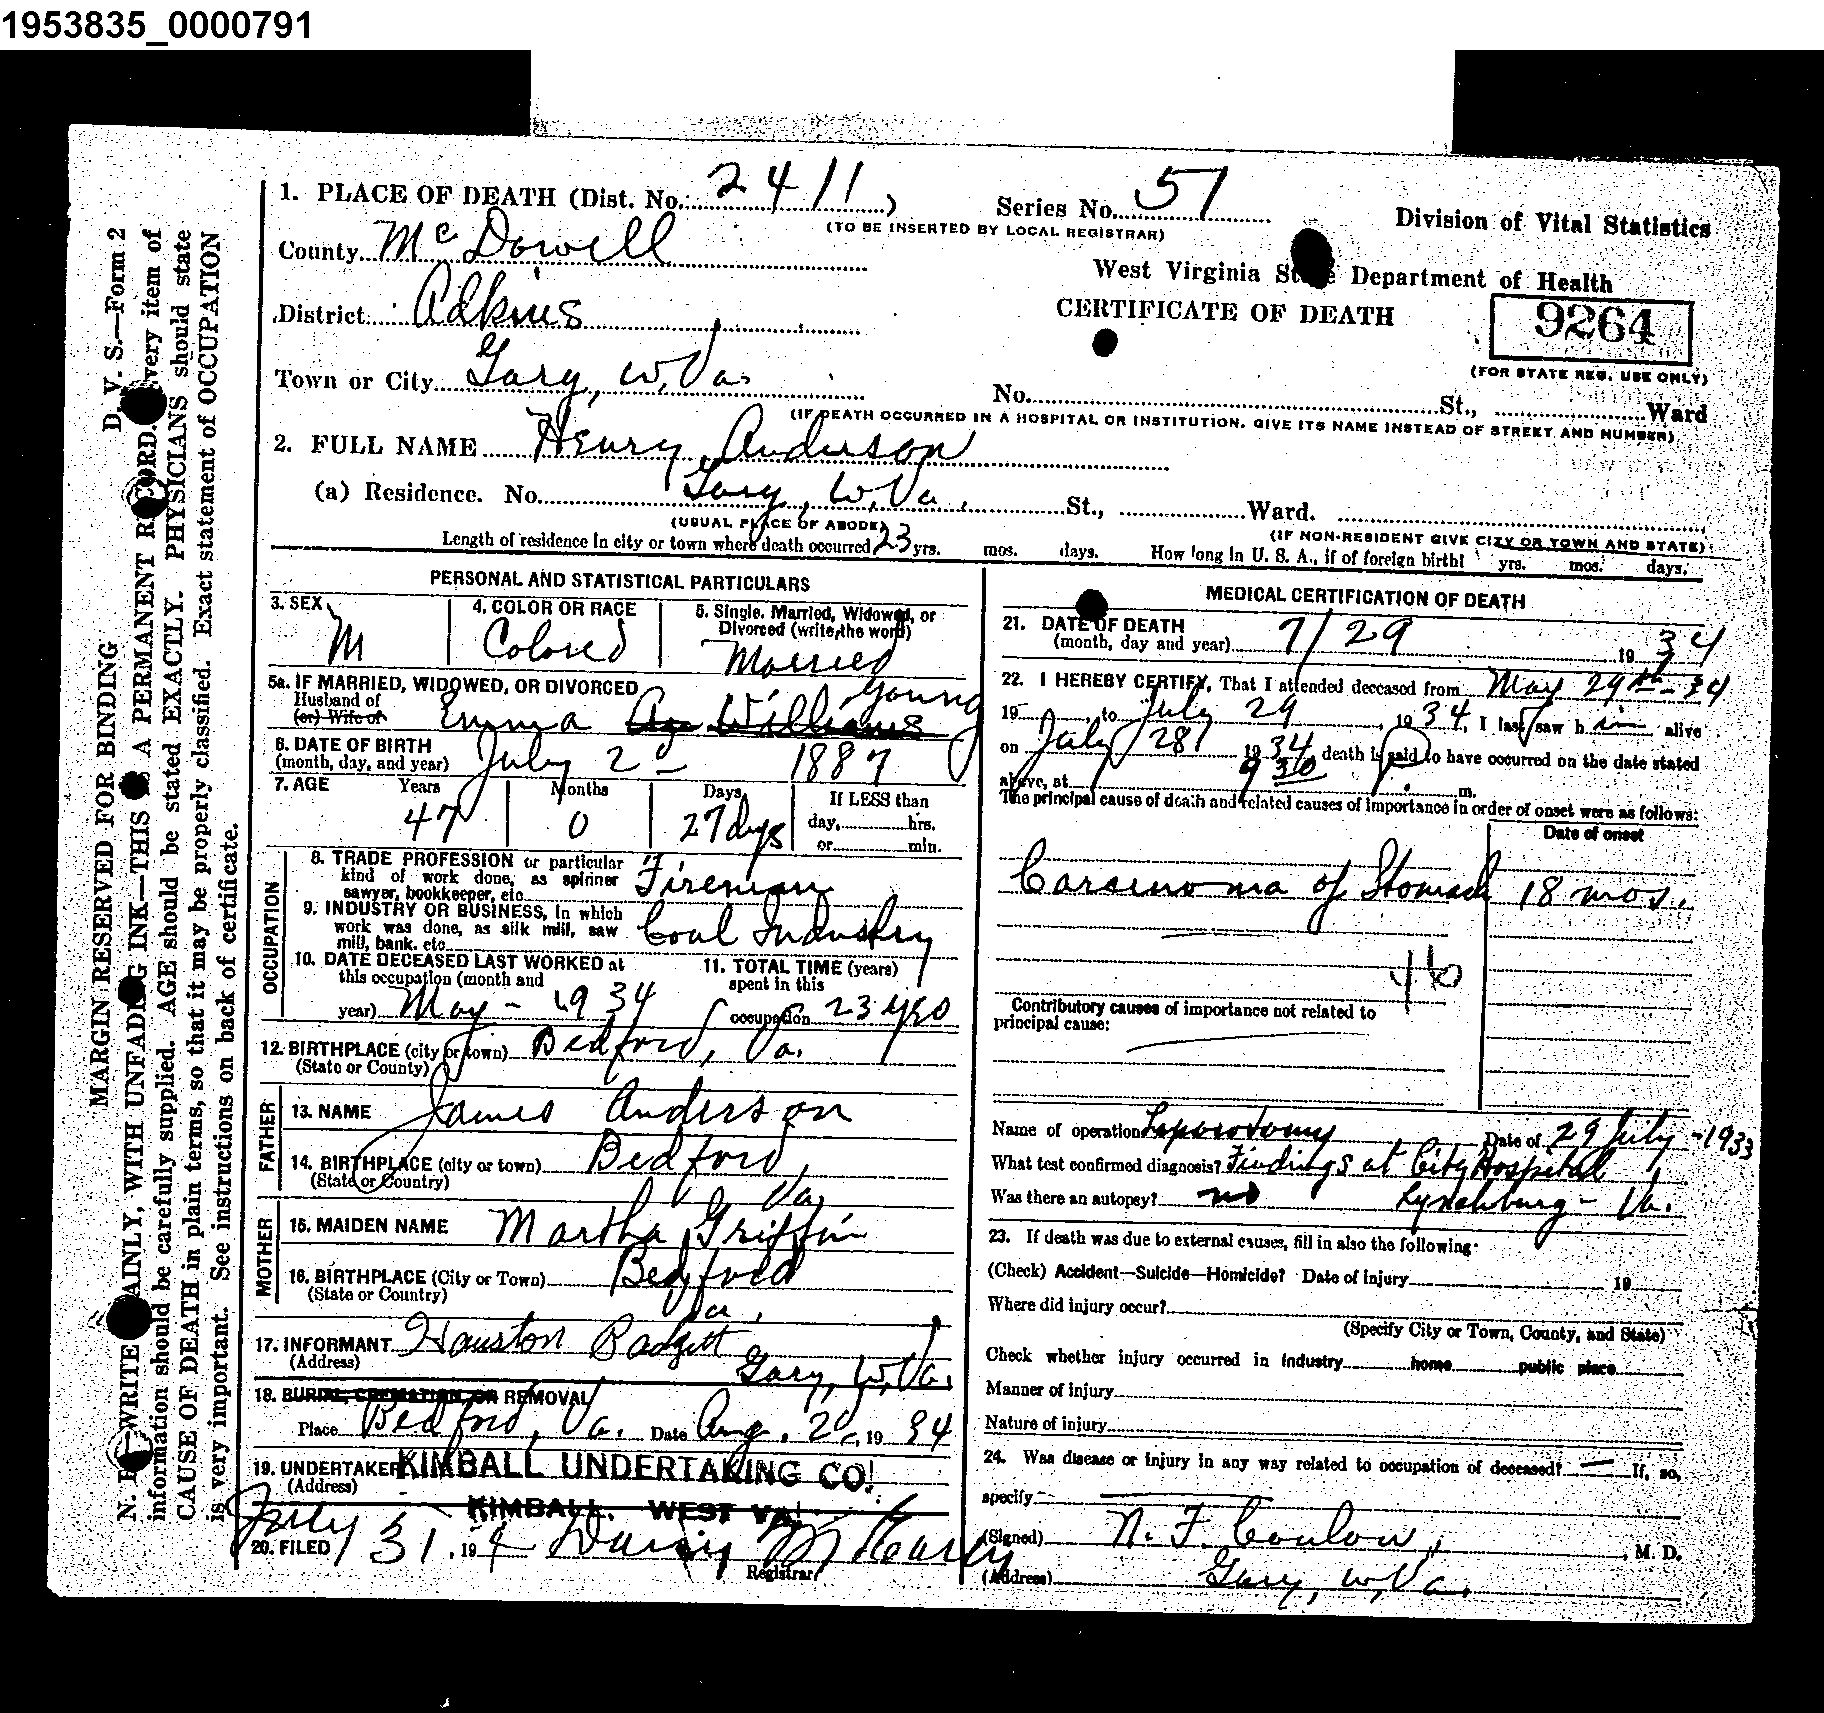 1953835_0000791
D. V. S.—Form 2
MARGIN RESERVED FOR BINDING
N. B.—WRITE PLAINLY, WITH UNFADING INK—THIS IS A PERMANENT RECORD. Every item of
information should be carefully supplied. AGE should be stated EXACTLY. PHYSICIANS should state
CAUSE OF DEATH in plain terms, so that it may be properly classified. Exact statement of OCCUPATION
is very important. See instructions on back of certificate.
1. PLACE OF DEATH (Dist. No. 2411)
Series No. 57
(TO BE INSERTED BY LOCAL REGISTRAR)
Division of Vital Statistics
County McDowell
West Virginia State Department of Health
District Adkins
CERTIFICATE OF DEATH
9264
(FOR STATE REG. USE ONLY)
Town or City Gary, W. Va.
No. St., Ward
(IF DEATH OCCURRED IN A HOSPITAL OR INSTITUTION, GIVE ITS NAME INSTEAD OF STREET AND NUMBER)
2. FULL NAME Henry Anderson
(a) Residence. No. Gary, W. Va. St., Ward.
(USUAL PLACE OF ABODE)
(IF NON-RESIDENT GIVE CITY OR TOWN AND STATE)
Length of residence in city or town where death occurred 23 yrs. mos. days. How long in U. S. A., if of foreign birth! yrs. mos. days.
PERSONAL AND STATISTICAL PARTICULARS
3. SEX M
4. COLOR OR RACE Colored
5. Single, Married, Widowed, or
Divorced (write the word)
Married
5a. IF MARRIED, WIDOWED, OR DIVORCED
Husband of
(or) Wife of
Emma Williams Young
6. DATE OF BIRTH
(month, day, and year) July 2 - 1887
7. AGE Years Months Days If LESS than
47 0 27 days day, hrs.
or min.
OCCUPATION
8. TRADE PROFESSION or particular
kind of work done, as spinner
sawyer, bookkeeper, etc. Fireman
9. INDUSTRY OR BUSINESS, in which
work was done, as silk mill, saw
mill, bank, etc. Coal Industry
10. DATE DECEASED LAST WORKED at
this occupation (month and
year) May - 1934
11. TOTAL TIME (years)
spent in this
occupation 23 yrs
12. BIRTHPLACE (city or town) Bedford, Va.
(State or County)
FATHER
13. NAME James Anderson
14. BIRTHPLACE (city or town) Bedford,
(State or Country) Va.
MOTHER
15. MAIDEN NAME Martha Griffin
16. BIRTHPLACE (City or Town) Bedford
(State or Country) Va.
17. INFORMANT Houston Padgett
(Address) Gary, W. Va.
18. BURIAL, CREMATION, OR REMOVAL
Place Bedford, Va. Date Aug. 2, 19 34
19. UNDERTAKER KIMBALL UNDERTAKING CO.
(Address)
KIMBALL, WEST VA.
20. FILED July 31, 19 4
Registrar
MEDICAL CERTIFICATION OF DEATH
21. DATE OF DEATH
(month, day and year) 7/29 19 34
22. I HEREBY CERTIFY, That I attended deceased from May 29th - 34
19 , to July 29, 19 34, I last saw h im alive
on July 28, 19 34 death is said to have occurred on the date stated
above, at 9 30 P. m.
The principal cause of death and related causes of importance in order of onset were as follows:
Date of onset
Carsenoma of Stomach 18 mos.
46
Contributory causes of importance not related to
principal cause:
Name of operation Laporotomy Date of 29 July - 1933
What test confirmed diagnosis? Findings at City Hospital
Was there an autopsy? no Lynchburg - Va.
23. If death was due to external causes, fill in also the following:
(Check) Accident—Suicide—Homicide? Date of injury 19
Where did injury occur?
(Specify City or Town, County, and State)
Check whether injury occurred in industry home public place
Manner of injury
Nature of injury
24. Was disease or injury in any way related to occupation of deceased? — If, so,
specify
(Signed) N. F. Coulow, M. D.
(Address) Gary, W. Va.